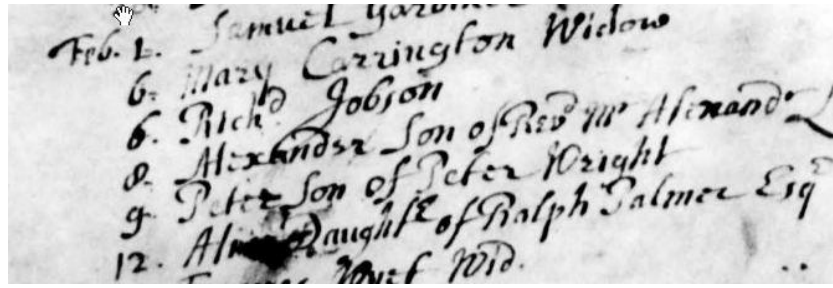 Feb. 2. Samuel Gardiner
6. Mary Carrington Widow
6. Richd. Jobson
8. Alexander Son of Revd Mr Alexandr
9. Peter Son of Peter Wright
12. Daughtr of Ralph Palmer Esqr
Wid.